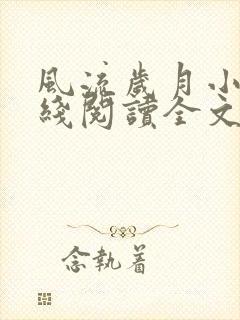 風流歲月小
綫閱讀全文
念執着